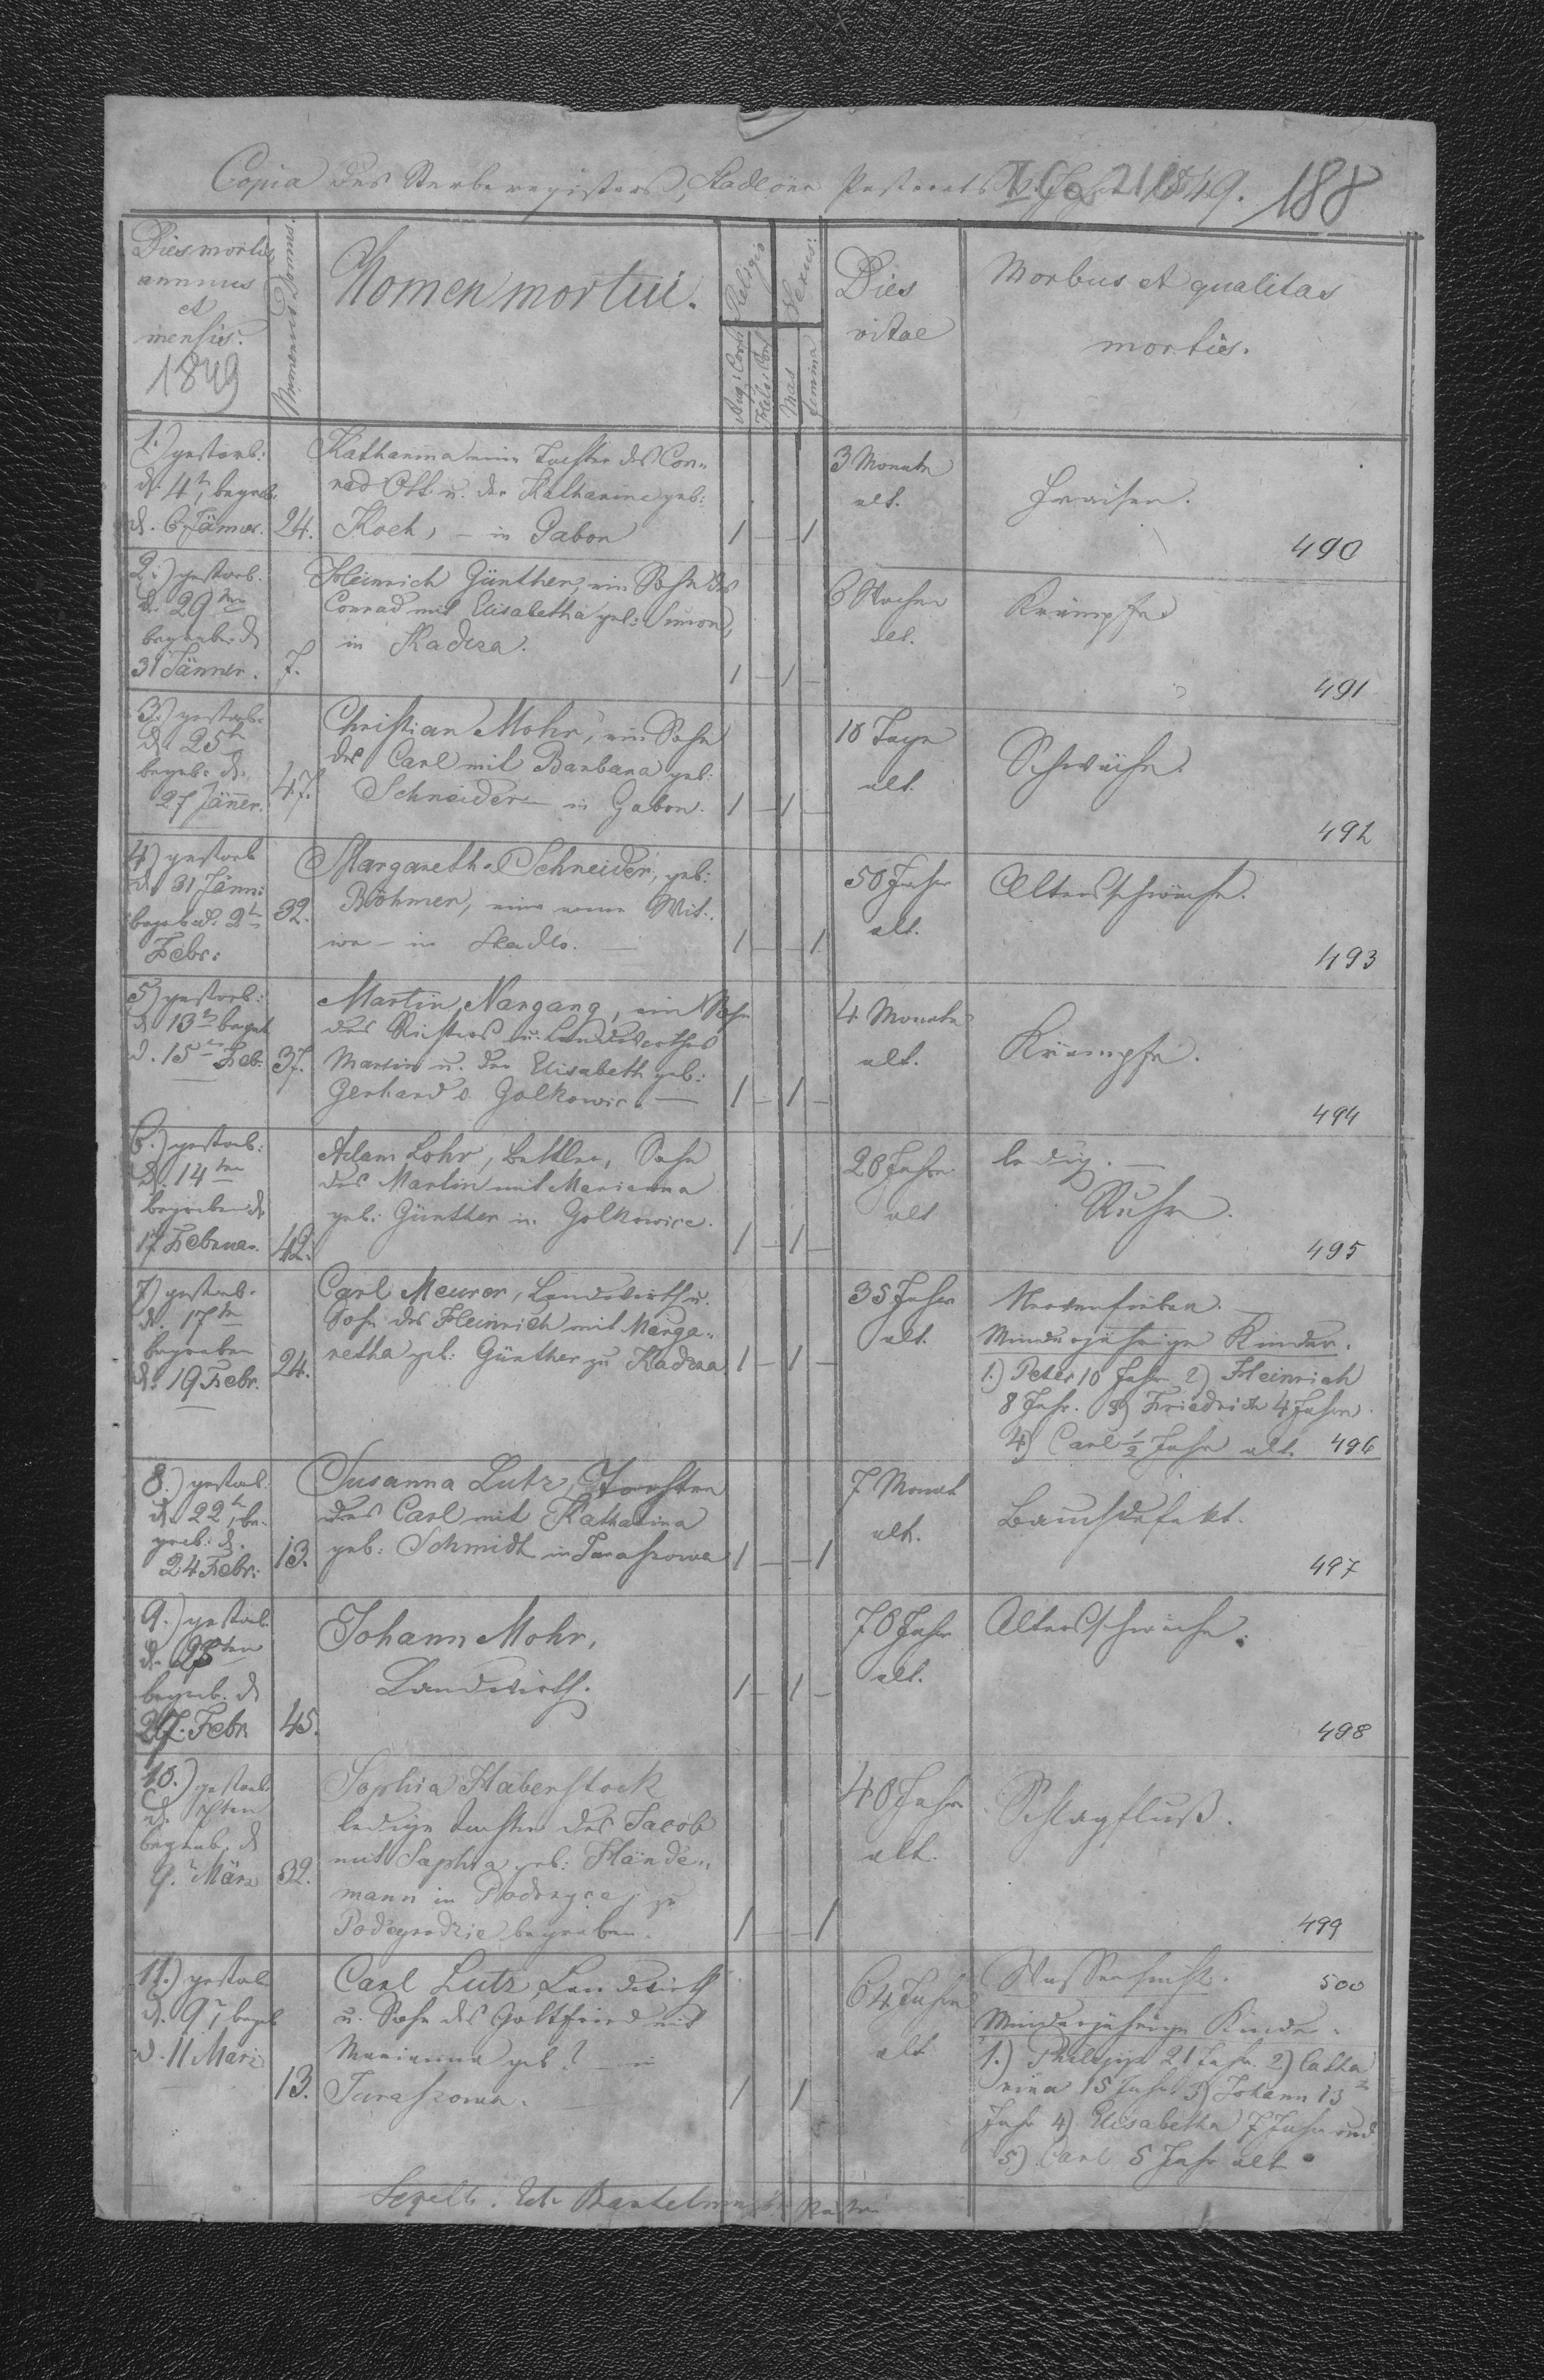 Copia des Sterberegisters, Stadloer Pastorats 1849. 188
Dies mortis
annus
et
mensis.
1849
Numerus Domus:
Nomen mortui.
Religio
Aug: Conf:
Helv: Conf
Sexus:
Mas
femina
Dies
vitae
Morbus et qualitas
mortis.
1.) gestorb:
d. 4t, begrab.
d. 6 Jänner.
24.
Katharina eine Tochter des Con„
rad Ott u. der Katharine geb:
Koch, – in Gabon
1 – – 1
3 Monate
alt.
Fraisen.
490
2.) gestorb.
d. 29ten
begraben d
31 Jänner.
7.
Heinrich Günther, ein Sohn des
Conrad mit Elisabetha geb: Simon,
in Kadcza.
1 – 1 –
6 Wochen
alt.
Krämpfe
491
3.) gestorb.
d. 25t
begrb. d.
27 Jänner.
47.
Christian Mohr, ein Sohn
des Carl mit Barbara geb:
Schneider – in Gabon.
1 – 1 –
10 Tage
alt.
Schwäche.
492
4) gestorb
d. 31 Jänn:
begrab d. 2t
Febr:
32.
Margaretha Schneider, geb:
Böhmer, eine arme Wit„
we – in Stadlo. –
1 – – 1
50 Jahr
alt.
Altersschwäche.
493
5) gestorb:
d 13t begrb
d. 15ten Feb:
37.
Martin Nargang, ein Sohn
des Richters u. Landwirthes
Martin u. der Elisabeth geb:
Gerhard v. Golkowic. –
1 – 1 –
4 Monate
alt.
Krämpfe.
494
6.) gestorb:
d. 14ten
begraben d.
17 Februar.
42.
Adam Lohr, Bettler, Sohn
des Martin mit Marianna
geb: Günther in Golkowice.
1 – 1 –
28 Jahre
alt
ledig. –
Ruhr.
495
7) gestorb.
d. 17ten
begraben
d. 19 Febr.
24.
Carl Meurer, Landwirth u.
Sohn des Heinrich mit Marga„
retha geb: Günther zu Kadcza
1 – 1 –
35 Jahr
alt.
Nervenfieber.
Minderjährige Kinder.
1.) Peter 10 Jahr 2) Heinrich
8 Jahr. 3) Friedrich 4 Jahre.
4) Carl 1/2 Jahr alt. 496
8.) gestorb.
d. 22t, be„
grab: d.
24 Febr:
13.
Susanna Lutz, Tochter
des Carl mit Katharina
geb: Schmidt in Juraszowa
1 – – 1
7 Monat
alt.
Bauchdefekt.
497
9.) gestorb.
d. 25ten
begrab. d
27. Febr
45.
Johann Mohr,
Landwirth.
1 – 1 –
70 Jahr
alt.
Altersschwäche.
498
10.) gestorb.
d. 7ten
begrab. d
9.t März
32.
Sophia Haberstock
ledige Tochter des Jacob
mit Sophia geb: Hände„
mann in Podrzyce, zu
Podegrodzie begraben.
1 – – 1
40 Jahr
alt.
Schlagfluß.
499
11.) gestorb
d. 9t, begrb
d. 11 März
13.
Carl Lutz Landwirth
u. Sohn des Gottfried mit
Marianna geb? – in
Juraszowa.
1 1
64 Jahre
alt
Wassersucht.
500
Minderjährige Kinder.
1.) Philipp 21 Jahr. 2) Catha
rina 15 Jahr 3) Johann 13
Jahr 4) Elisabetha 7 Jahr und
5) Carl 5 Jahr alt.